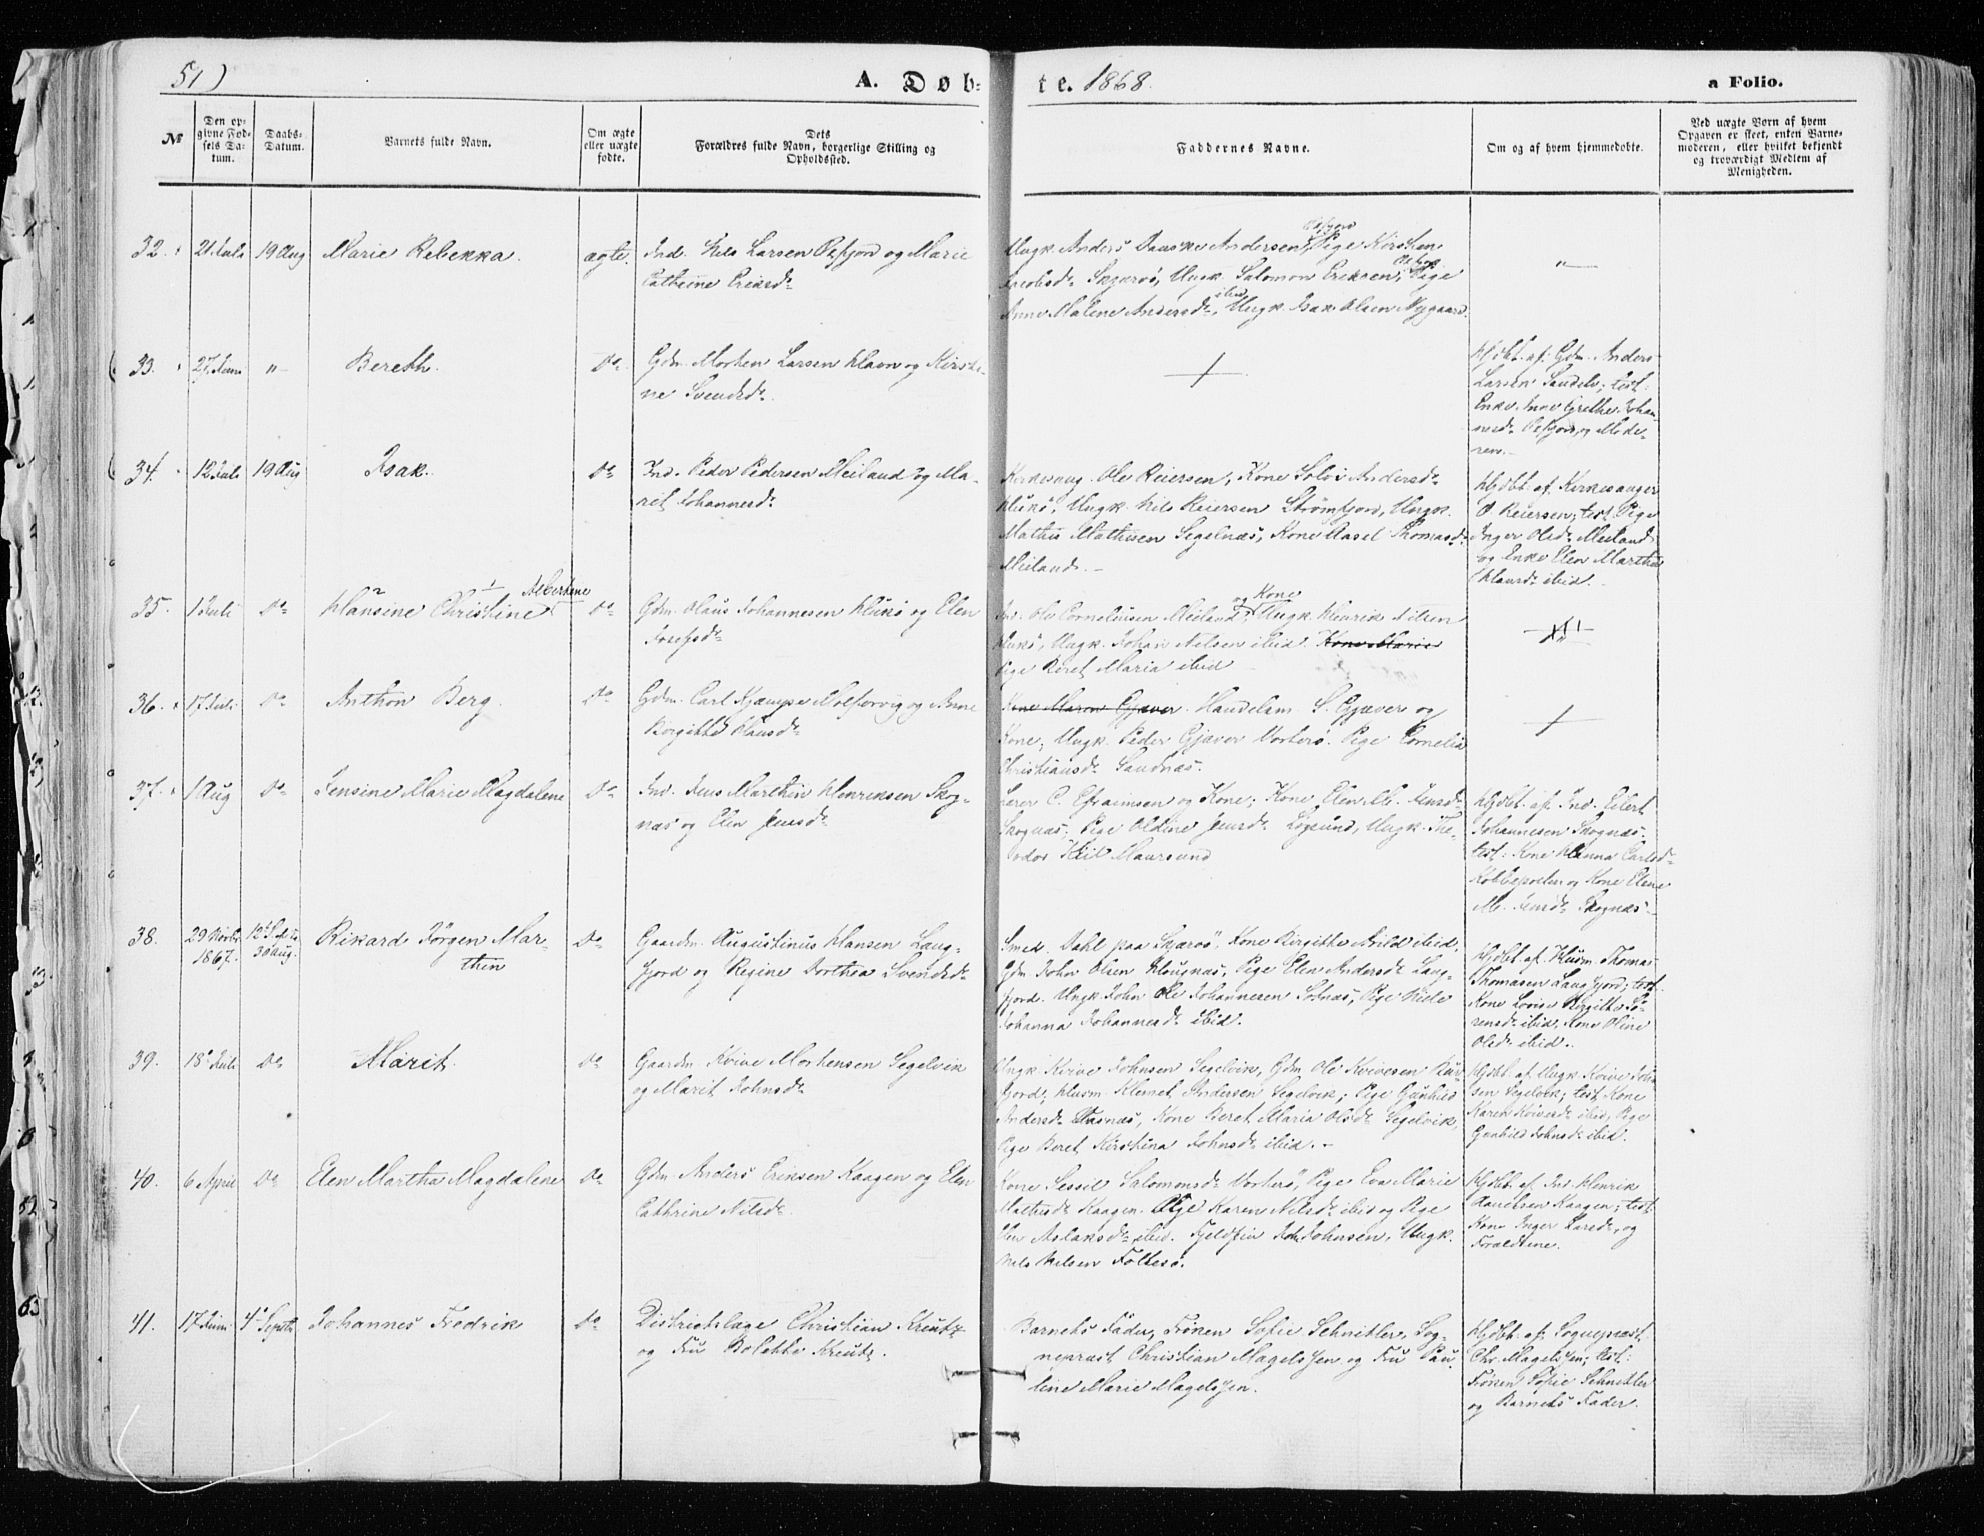 51)
A. Døb-
te. 1868.
a Folio.
№
Den op-
givne Fød-
sels Da-
tum.
Daabs-
Datum.
Barnets fulde Navn.
Om ægte
eller uægte
fødte.
Dets
Forældres fulde Navn, borgerlige Stilling og
Opholdssted.
Faddernes Navne.
Om og af hvem hjemmedøbte.
Ved uægte Børn af hvem
Opgaven er skeet, enten Barne-
moderen, eller hvilket bekjendt
og troværdigt Medlem af
Menigheden.
32.
21 Juli
19 Aug
Marie Rebekka.
ægte.
Ind. Nils Larsen Oxfjord og Marie
Cathrine Eriksd.
Ungk. Anders Andersen, Pige Kirsten
Jacobsd. Skjærvø, Ungk. Salomon Eriksen, Pige
Anne Malene Andersd. ibid, Ungk. Isak Olsen Nygaard.
"
33.
27 Juni
"
Bereth.
Do.
Gdm. Morten Larsen Havn og Kirsti-
ne Svendsd.
Hjdbt. af: Gdm. Anders
Larsen Sandelv; test:
Enke Anne Grethe Johan-
nesd. Oxfjord, og Mode-
ren.
34.
12 Juli
19 Aug
Isak.
Do
Ind. Peder Pedersen Meiland og Ma-
rit Johannesd.
Kirkesang. Ole Reiersen, Kone Solvi Andersd.
Hukø, Ungk. Nils Reiersen Strømfjord, Ungk.
Mathis Mathisen Segelnæs, Kone Aasel Thomasd.
Meiland.
Hjdbt. af. Kirkesanger
O. Reiersen; test. Pige
Inger Olsd. Meiland
og Enke Elen Martha
Hansd. ibid.
35.
1 Juli
Do
Hansine Christine Albertine
Do
Gdm. Olaus Johannesen Hukø og Elen
Josefsd.
Ind. Ole Corneliusen Meiland, og Kone Ungk. Henrik Nilsen
Hukø, Ungk. Johan Nilsen ibid. Kone Marie
Pige Beret Maria ibid
36.
17 Juli
Do
Anthon Berg.
Do
Gdm. Carl Kjempe Molforvig og Anne
Birgitte Hansd.
Kone Maren Gjæver. Handelsm. S. Gjæver og
Kone; Ungk. Peder Gjæver Vorterø. Pige Cornelia
Christiansd. Sandnæs.
37.
1 Aug
Do
Jensine Marie Magdalene
Do
Ind. Jens Marthin Henriksen Skog-
næs og Elen Jensd.
Lærer C. Efraimsen og Kone; Kone Elen M. Jensd.
Skognæs, Pige Oldine Jensd. Løgsund, Ungk. The-
odor Maursund
Hjdbt. af. Ind. Eilert
Johannesen Skognæs.
test: Kone Hanna Carlsd.
og Kone Elene
M. Jensd. Skognæs.
38.
29 Novbr.
1867.
12 Septb.
30 Aug.
Rikard Jørgen Mar-
thin
Do
Gaardm. Augustinus Hansen Lang-
fjord og Regine Dorthea Svendsd.
Smed. Dahl paa Skjærvø. Kone Birgitte Arild ibid,
Gdm. John Olsen Haugnæs, Pige Elen Andersd. Lang-
fjord. Ungk. John Ole Johannesen Sotnæs, Pige Nille
Johanna Johannesd. ibid.
Hjdbt. af. Husm. Thomas
Thomasen Langfjord; test.
Kone Lovise Birgitte Sø-
rensd. ibid, Kone Oline
Olsd. ibid.
39.
18 Juli
Do
Marit.
Do
Gaardm. Kvive Mortensen Segelvik
og Marit Johnsd.
Ungk. Kvive Johnsen Segelvik, Gdm. Ole Kvivesen
fjord, Husm. Klemet Andersen Segelvik; Pige Gunhild
Andersd. Kone Beret Maria Olsd. Segelvik,
Pige Beret Kirstina Johnsd. ibid.
Hjdbt. af. Ungk. Kvive John-
sen Segelvik; test. Kone
Karen Kvivesd. ibid, Pige
Gunhild Johnsd. ibid.
40.
6 April
Do
Elen Martha Magdalene
Do
Gdm. Anders Eriksen Kaagen og Elen
Cathrine Nilsd.
Kone Sessil Salomonsd. Vorterø, Pige Eva Marie
Mathisd. Kaagen. Pige Karen Nilsd. ibid og Pige
Aslaksd. ibid. Fjeldfin Johnsen, Ungk.
Nils Nilsen Follesø.
Hjdbt. af. Ind. Henrik
Kaagen; test.
Kone Inger Larsd., og
Forældrene.
41.
17 Juni
4 Septbr
Johannes Fredrik
Do
Districtslæge Christian Kreutz
og Fru Bolette Kreutz.
Barnets Fader, Frøken Sofie Schnitler, Sog-
nepræst Christian Magelssen og Fru Pau-
line Marie Magelssen.
Hjdbt. af. Sognepræst
Chr. Magelssen; test:
Frøken Sofie Schnitler
og Barnets Fader.